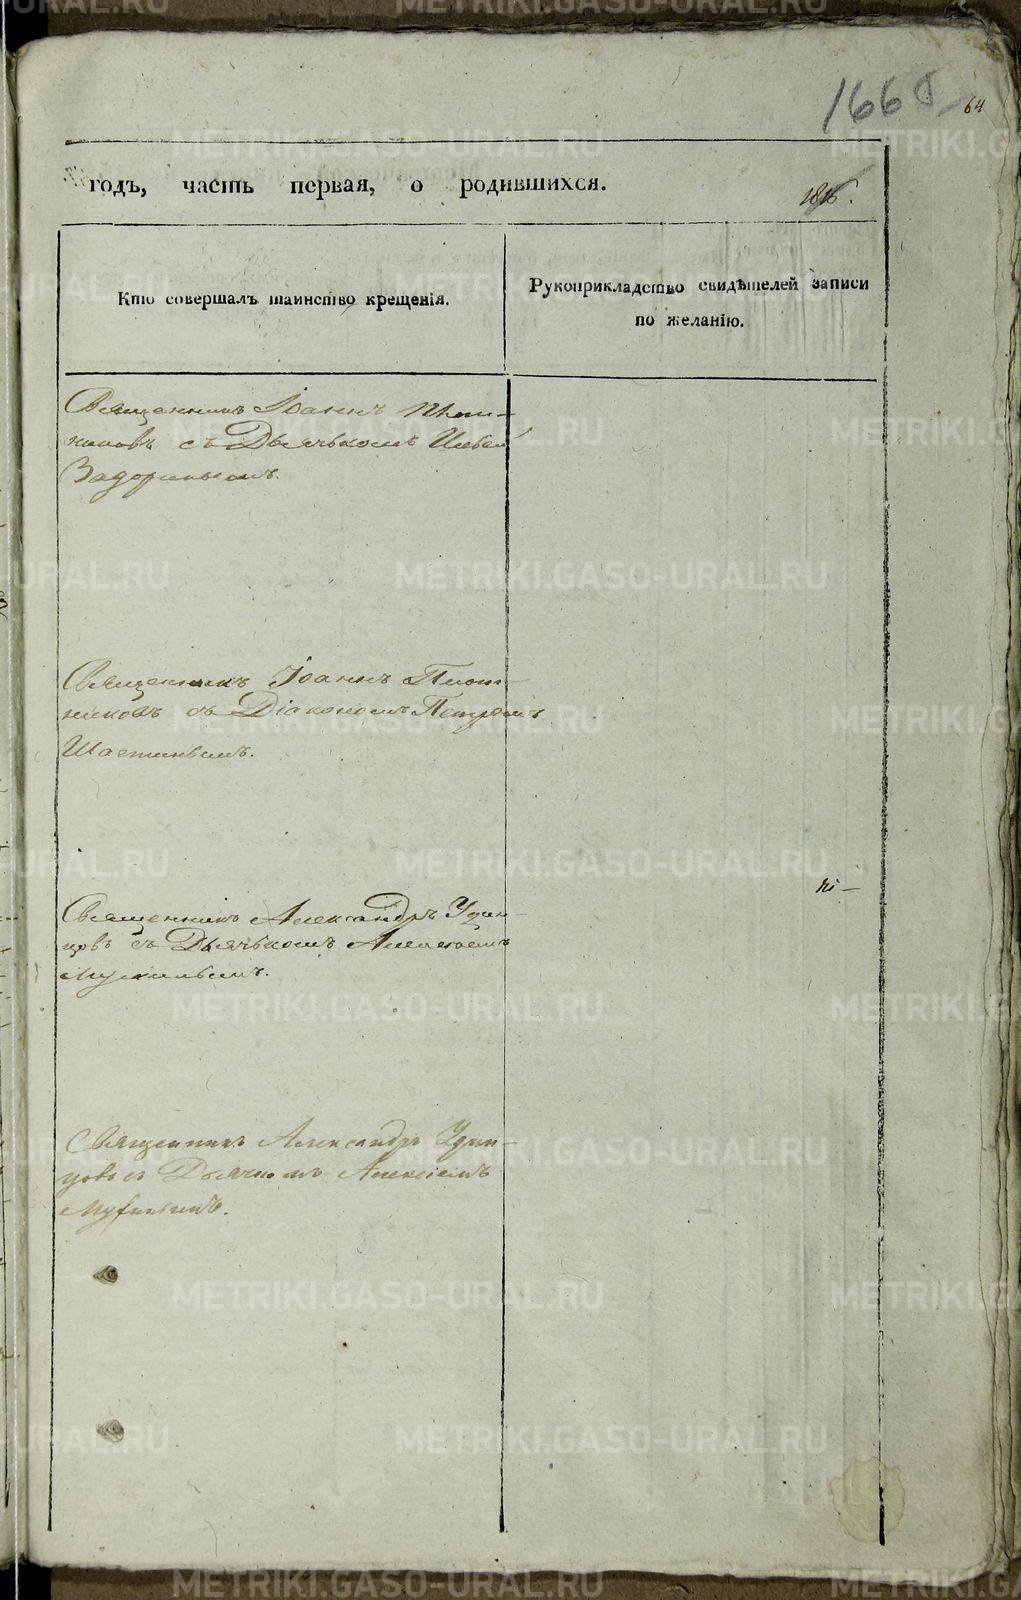 166
64
годъ, часть первая, о родившихся.
Кто совершалъ таинство крещенія.
Рукоприкладство свидѣтелей записи
по желанію.
Священникъ Іоаннъ Плот-
никовъ съ Дьячькомъ Ильей
Задоринымъ.
Священникъ Іоаннъ Плот-
никовъ съ Діакономъ Петромъ
Шастинымъ.
Священникъ Александръ Удин-
цовъ съ Дьячькомъ Алексѣемъ
Священникъ Александръ Удин-
цовъ съ Дьячкомъ Алексіемъ
METRIKI.GASO-URAL.RU